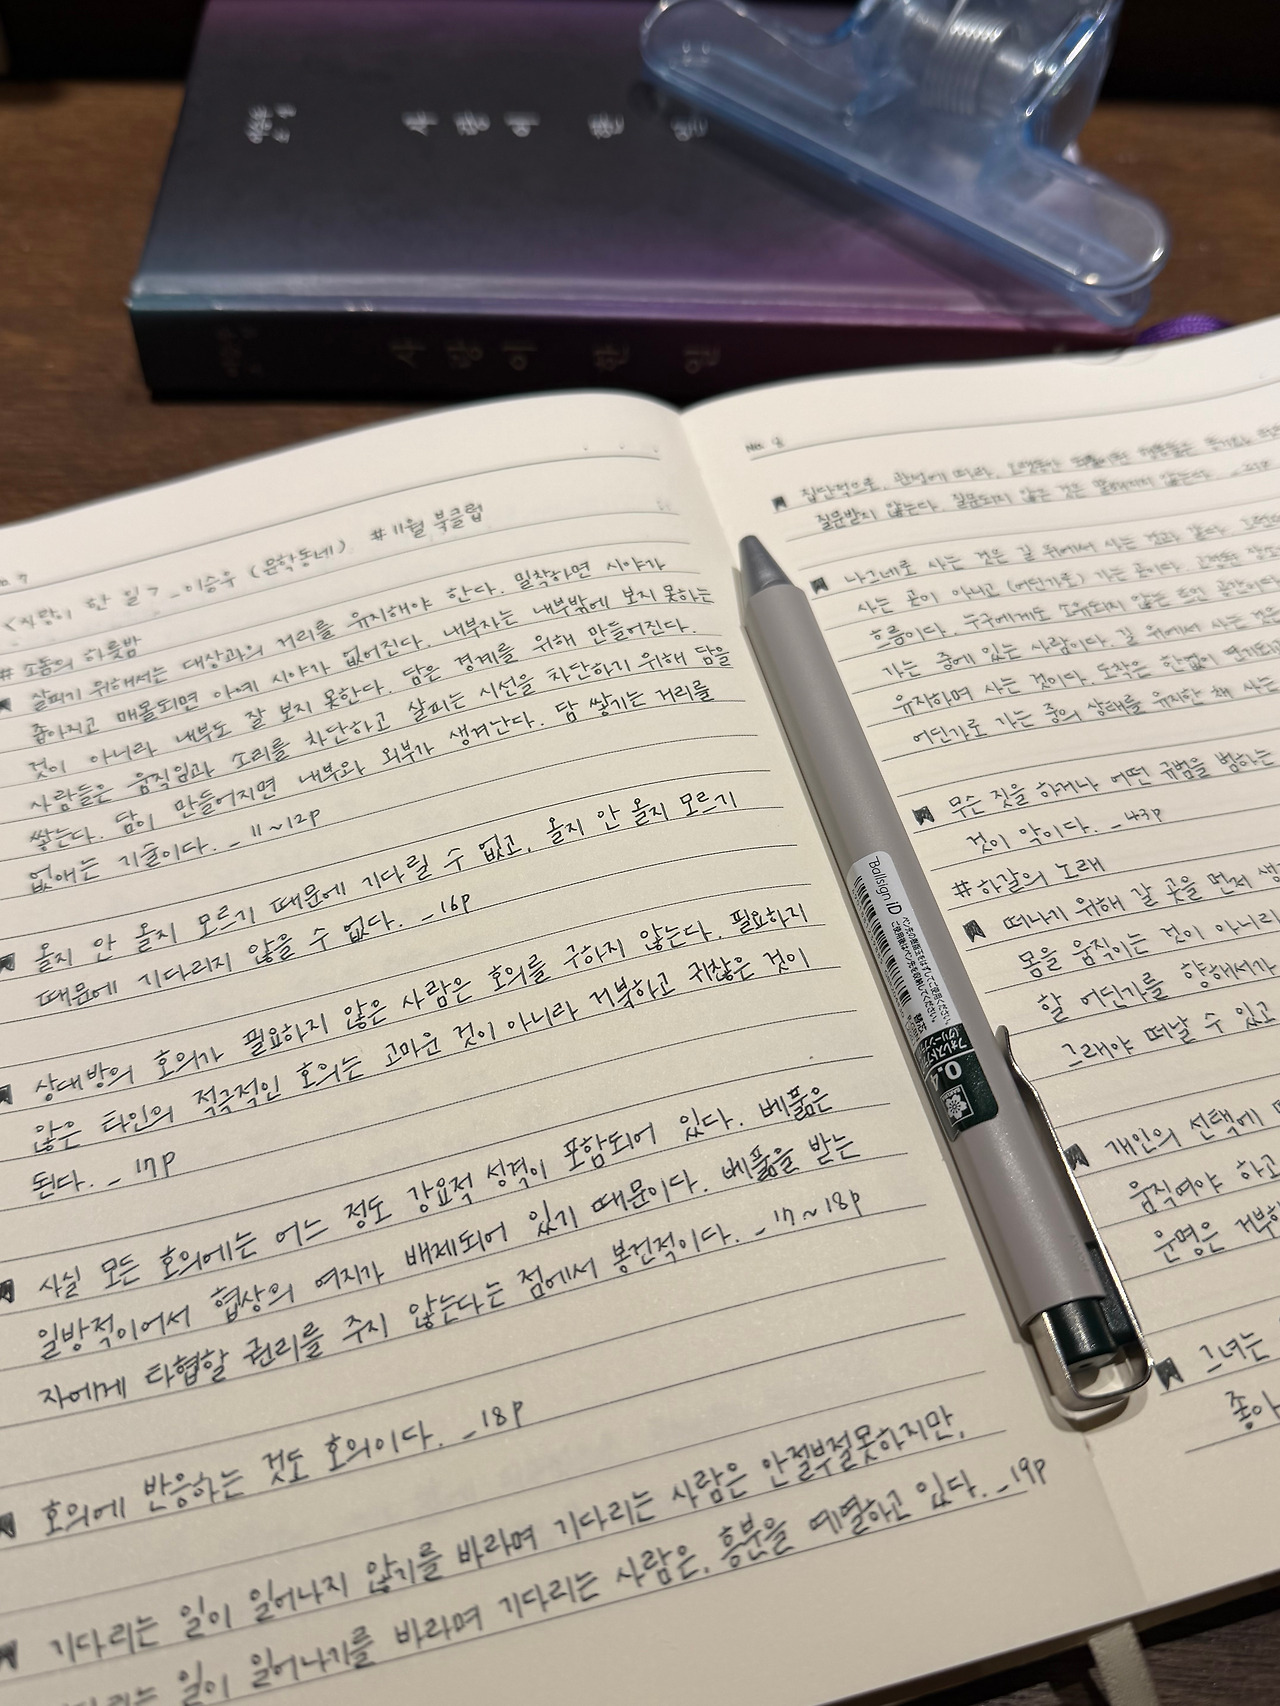 사랑이 한 일
사랑이 한 일
<사랑이 한 일> _이승우 (문학동네) #11월 북클럽
# 소돔의 하룻밤
살피기 위해서는 대상과의 거리를 유지해야 한다. 밀착하면 시야가
좁아지고 매몰되면 아예 시야가 없어진다. 내부자는 내부밖에 보지 못하는
것이 아니라 내부도 잘 보지 못한다. 담은 경계를 위해 만들어진다.
사람들은 움직임과 소리를 차단하고 살피는 시선을 차단하기 위해 담을
쌓는다. 담이 만들어지면 내부와 외부가 생겨난다. 담 쌓기는 거리를
없애는 기술이다. _11~12p
올지 안 올지 모르기 때문에 기다릴 수 없고, 올지 안 올지 모르기
때문에 기다리지 않을 수 없다. _16p
상대방의 호의가 필요하지 않은 사람은 호의를 구하지 않는다. 필요하지
않은 타인의 적극적인 호의는 고마운 것이 아니라 거북하고 귀찮은 것이
된다. _17p
사실 모든 호의에는 어느 정도 강요적 성격이 포함되어 있다. 베풂은
일방적이어서 협상의 여지가 배제되어 있기 때문이다. 베풂을 받는
자에게 타협할 권리를 주지 않는다는 점에서 봉건적이다. _17~18p
호의에 반응하는 것도 호의이다. _18p
기다리는 일이 일어나지 않기를 바라며 기다리는 사람은 안절부절못하지만,
기다리는 일이 일어나기를 바라며 기다리는 사람은, 흥분을 예열하고 있다. _19p
No.
집단적으로, 관성에 따라, 오랫동안
질문받지 않는다. 질문되지 않은 것은
나그네로 사는 것은 길 위에서 사는 것과 같다.
사는 곳이 아니고 (어딘가로) 가는 곳이다.
흐름이다. 누구에게도 소유되지 않는 트인 공간이다
가는 중에 있는 사람이다. 길 위에서 사는 것은
유지하며 사는 것이다. 도착은 한없이
어딘가로 가는 중의 상태를 유지한 채 사는
무슨 짓을 하거나 어떤 규범을 범하는
것이 악이다. _43p
#하갈의 노래
떠나기 위해 갈 곳을 먼저
몸을 움직이는 것이 아니라
할 어딘가를 향해서가
그래야 떠날 수 있고
개인의 선택에
움직여야 하고
운명은
그녀는
좋아
Ballsign iD
0.4